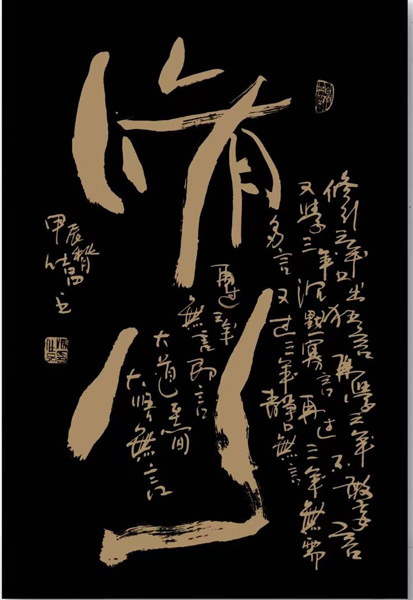 脩
修行三年口出狂言再學三年不敢妄言
又學三年沉默寡言再过三年無需
多言又过三年静口無言
再过三年
無言即言
大道至简
大悟無言
甲辰
书